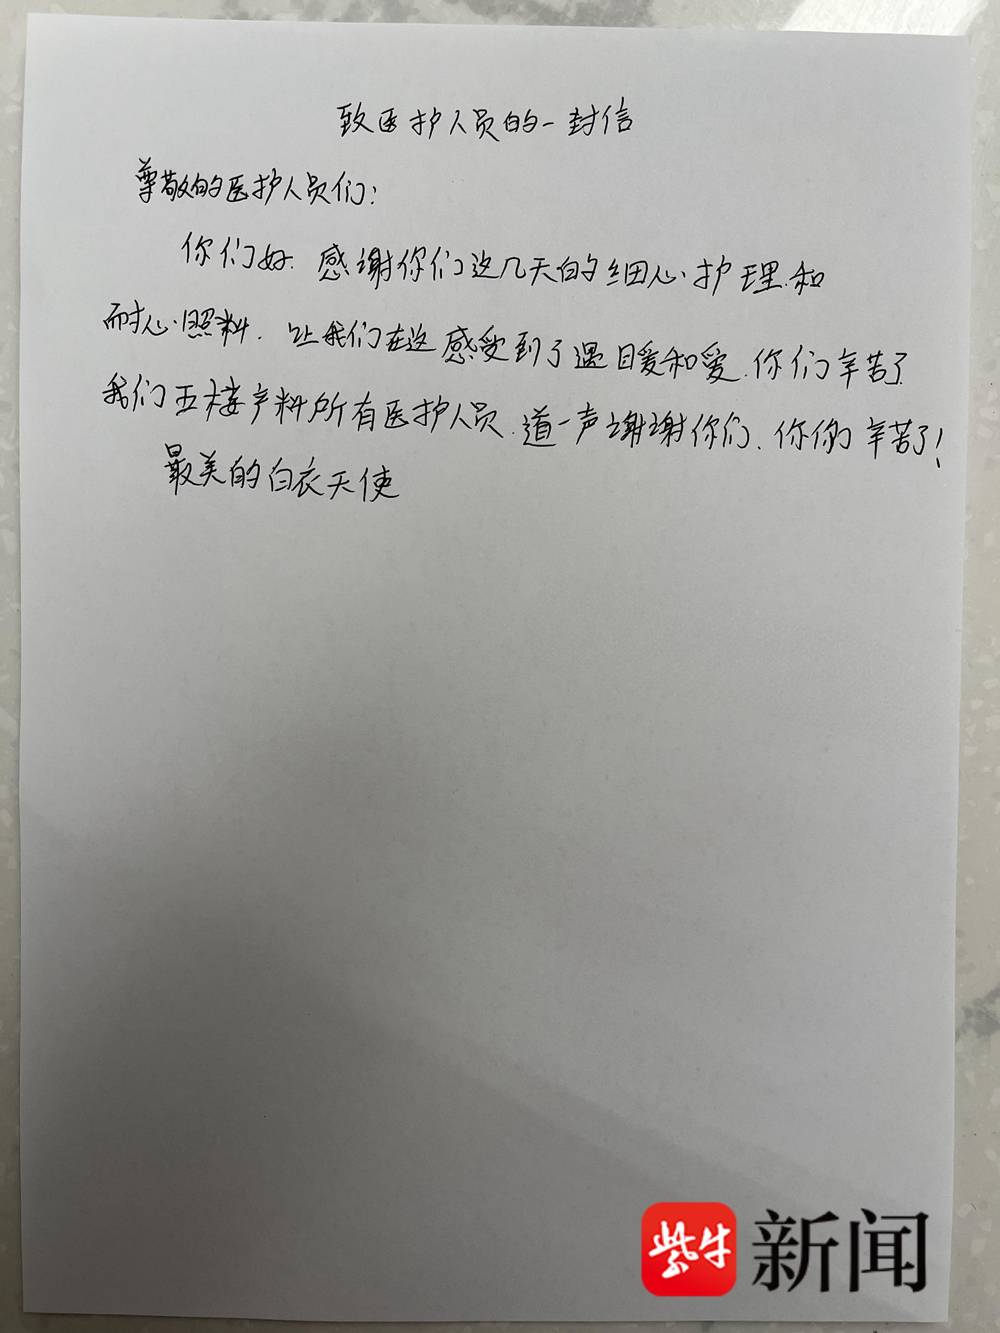 致医护人员的一封信
尊敬的医护人员们:
你们好.感谢你们这几天的细心护理.和
耐心照料.让我们在这感受到了温暖和爱.你们辛苦了
我们五楼产料所有医护人员.道一声谢谢你们、你们辛苦了!
最美的白衣天使
紫牛 新闻